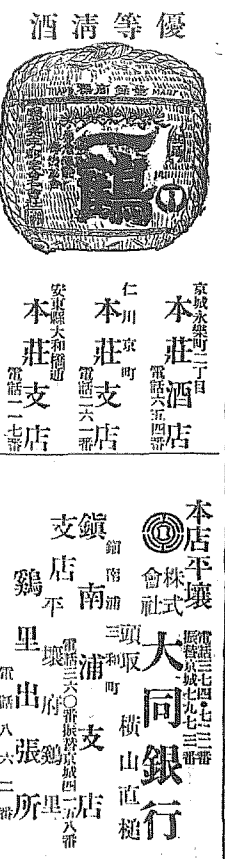 優等清酒
一鶴
京城永樂町二丁目
本莊酒店
電話六五四番
仁川京町
本莊支店
電話二六一番
安東縣大和橋通
本莊支店
電話一一七番
本店平壤
電話三七四・七一二番
振替京城七九七三番
株式會社 大同銀行
頭取 橫山直槌
鎭南浦三和町
鎭南浦支店
電話三六〇番振替京城四一五八番
支店平壤府鷄里
鷄里出張所
電話八六二番